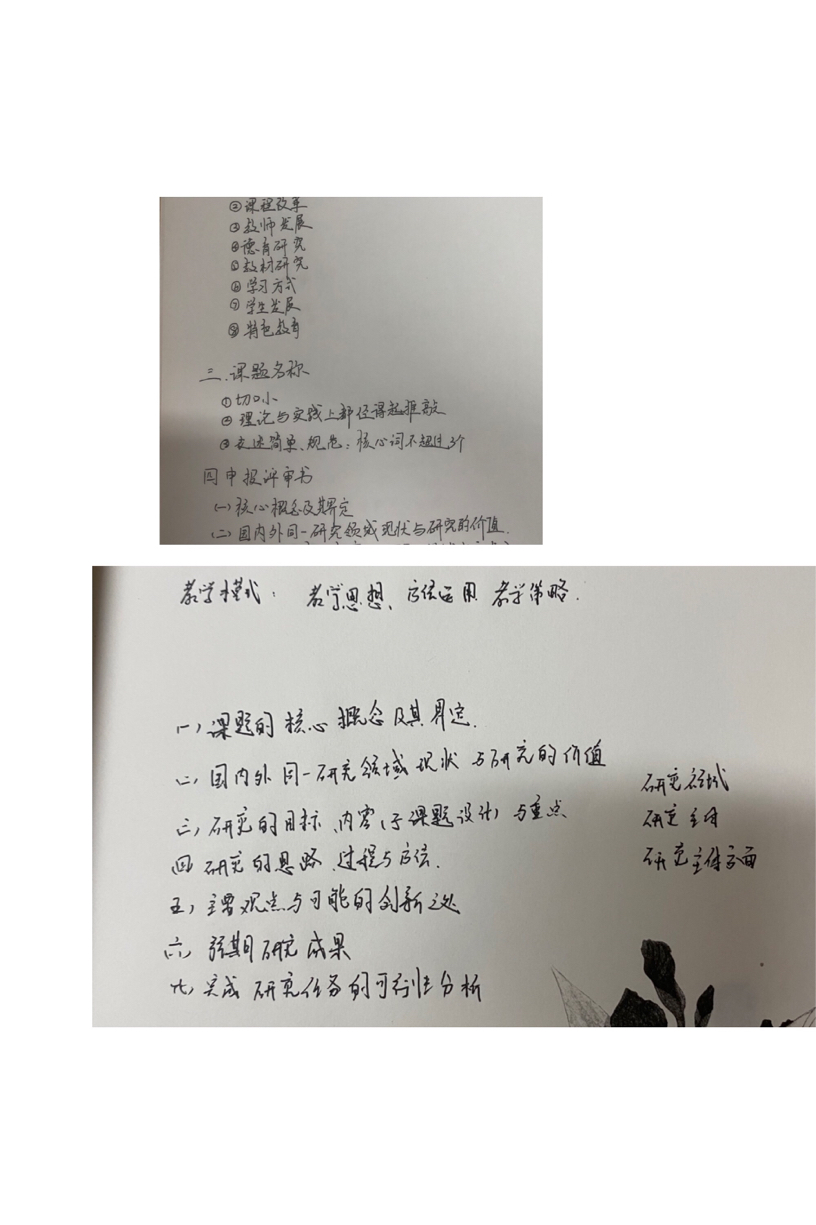 ②课程改革
③教师发展
④德育研究
⑤教材研究
⑥学习方式
⑦学生发展
⑧特色教育
三.课题名称
①切口小
②理论与实践上都经得起推敲
③表述简单、规范:核心词不超过3个
四申报评审书
(一)核心概念及其界定
(二)国内外同一研究领域现状与研究的价值.
教学模式: 教学思想、方法运用 教学策略.
一)课题的核心概念及其界定.
二)国内外同一研究领域现状与研究的价值
研究领域
三)研究的目标、内容(子课题设计)与重点
研究
四 研究的思路、过程与方法.
研究主体方面
五)主要观点与可能的创新之处
六)预期研究成果
七)完成研究任务的可行性分析